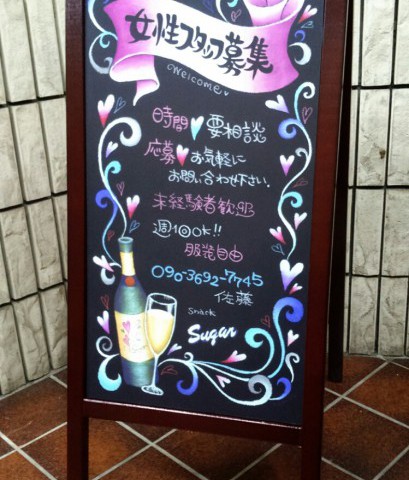 女性スタッフ募集
welcome
時間♥要相談
応募♥お気軽に
お問い合わせ下さい.
未経験者歓迎
週1◎ok!!
服装自由
090-3692-7745
佐藤
snack
Sugar